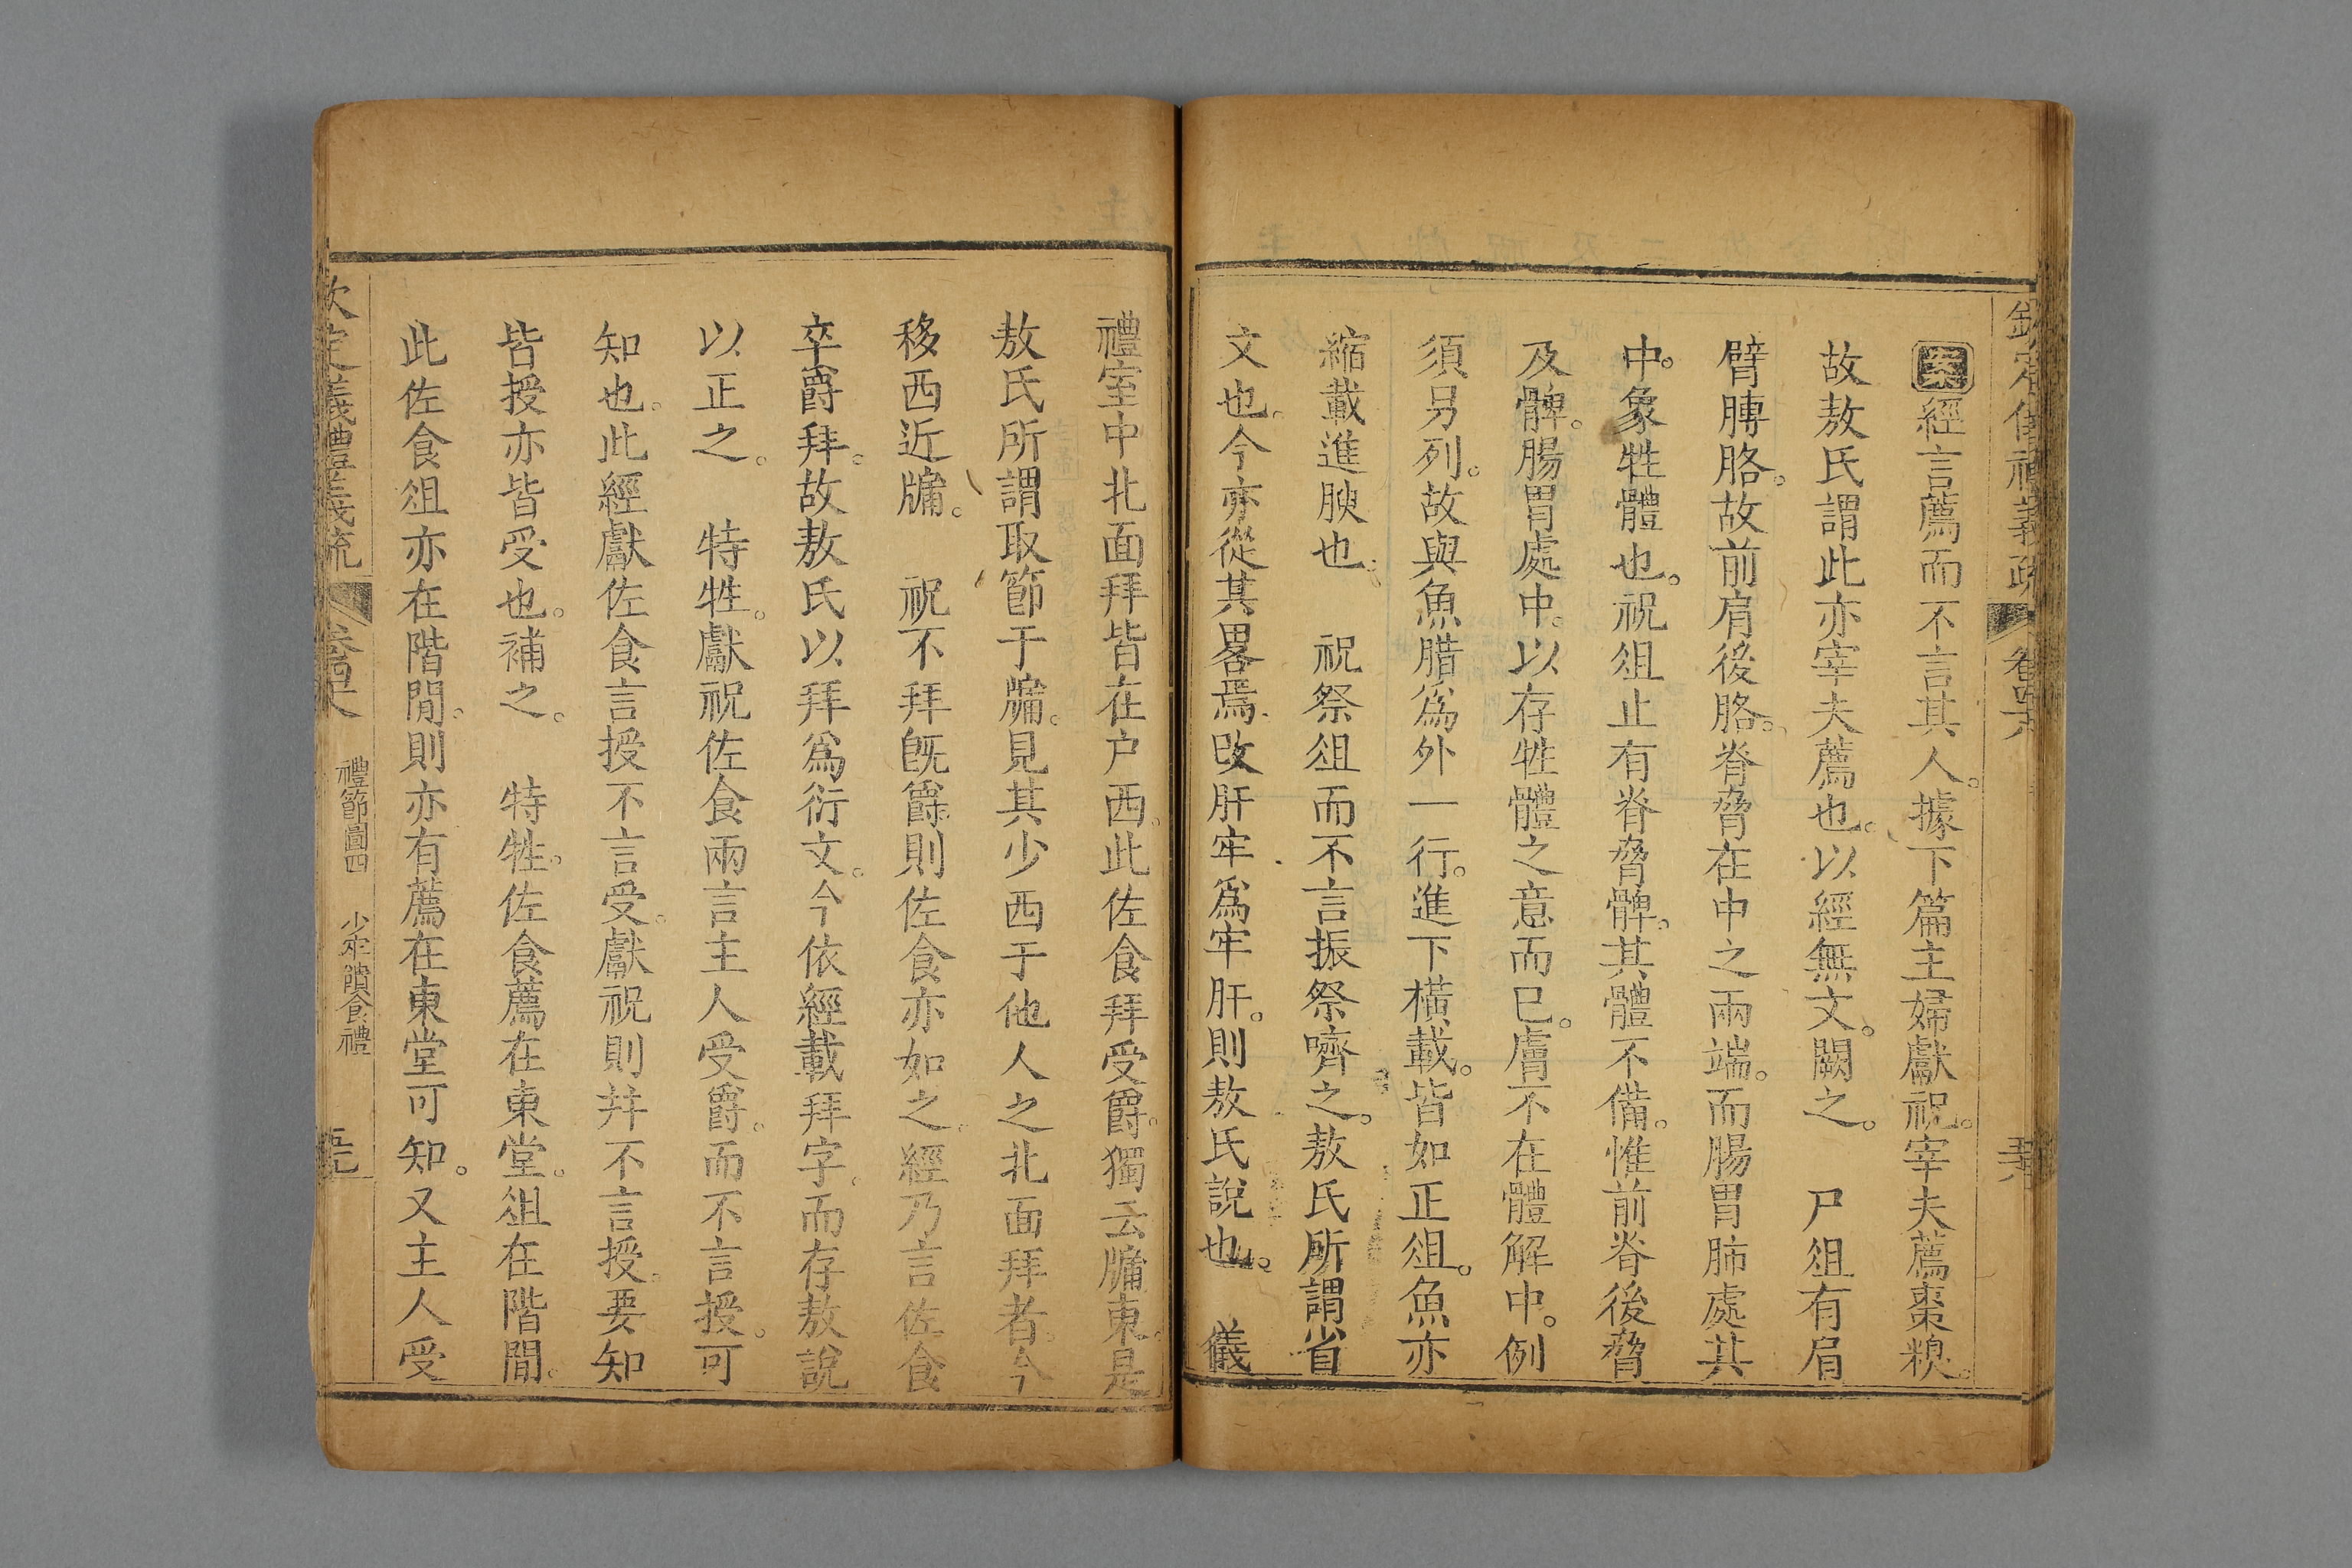 欽定儀禮義疏 卷四十六
案經言薦而不言其人。據下篇主婦獻祝。宰夫薦棗糗。
故敖氏謂此亦宰夫薦也。以經無文。闕之。 尸俎有肩
臂膊胳。故前肩後胳。脊脅在中之兩端。而腸胃肺處其
中。象牲體也。祝俎止有脊脅髀。其體不備。惟前脊後脅
及髀。腸胃處中。以存牲體之意而已。膚不在體解中。例
須另列。故與魚腊爲外一行。進下橫載。皆如正俎。魚亦
縮載進腴也。 祝祭俎而不言振祭嚌之。敖氏所謂省
文也。今亦從其畧焉。改肝牢爲牢肝。則敖氏說也。 儀
禮室中北面拜皆在户西。此佐食拜受爵。獨云牖東。是
敖氏所謂取節于牖。見其少西于他人之北面拜者。今
移西近牖。 祝不拜旣爵。則佐食亦如之。經乃言佐食
卒爵拜。故敖氏以拜爲衍文。今依經載拜字。而存敖說
以正之。 特牲。獻祝佐食兩言主人受爵。而不言授。可
知也。此經獻佐食言授不言受。獻祝則并不言授。要知
皆授亦皆受也。補之。 特牲。佐食薦在東堂。俎在階閒。
此佐食俎亦在階閒。則亦有薦在東堂可知。又主人受
欽定儀禮義疏 卷四十六 禮節圖四 少牢饋食禮